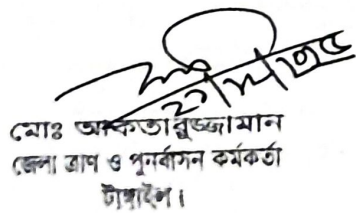 মোঃ আকতারুজ্জামান
জেলা ত্রাণ ও পুনর্বাসন কর্মকর্তা
টাঙ্গাইল।